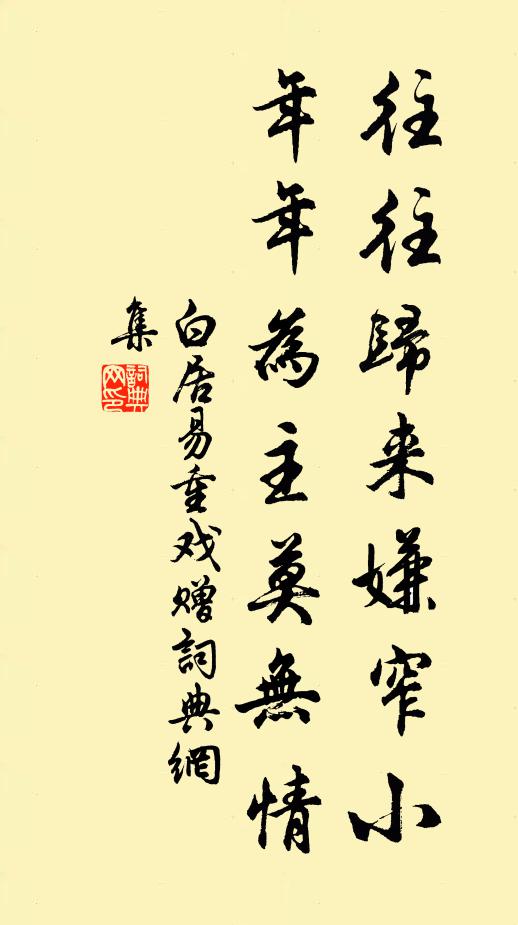 往往歸来嫌窄小
年年為主莫無情
白居易重戏贈詞典網
集
詞典
网印